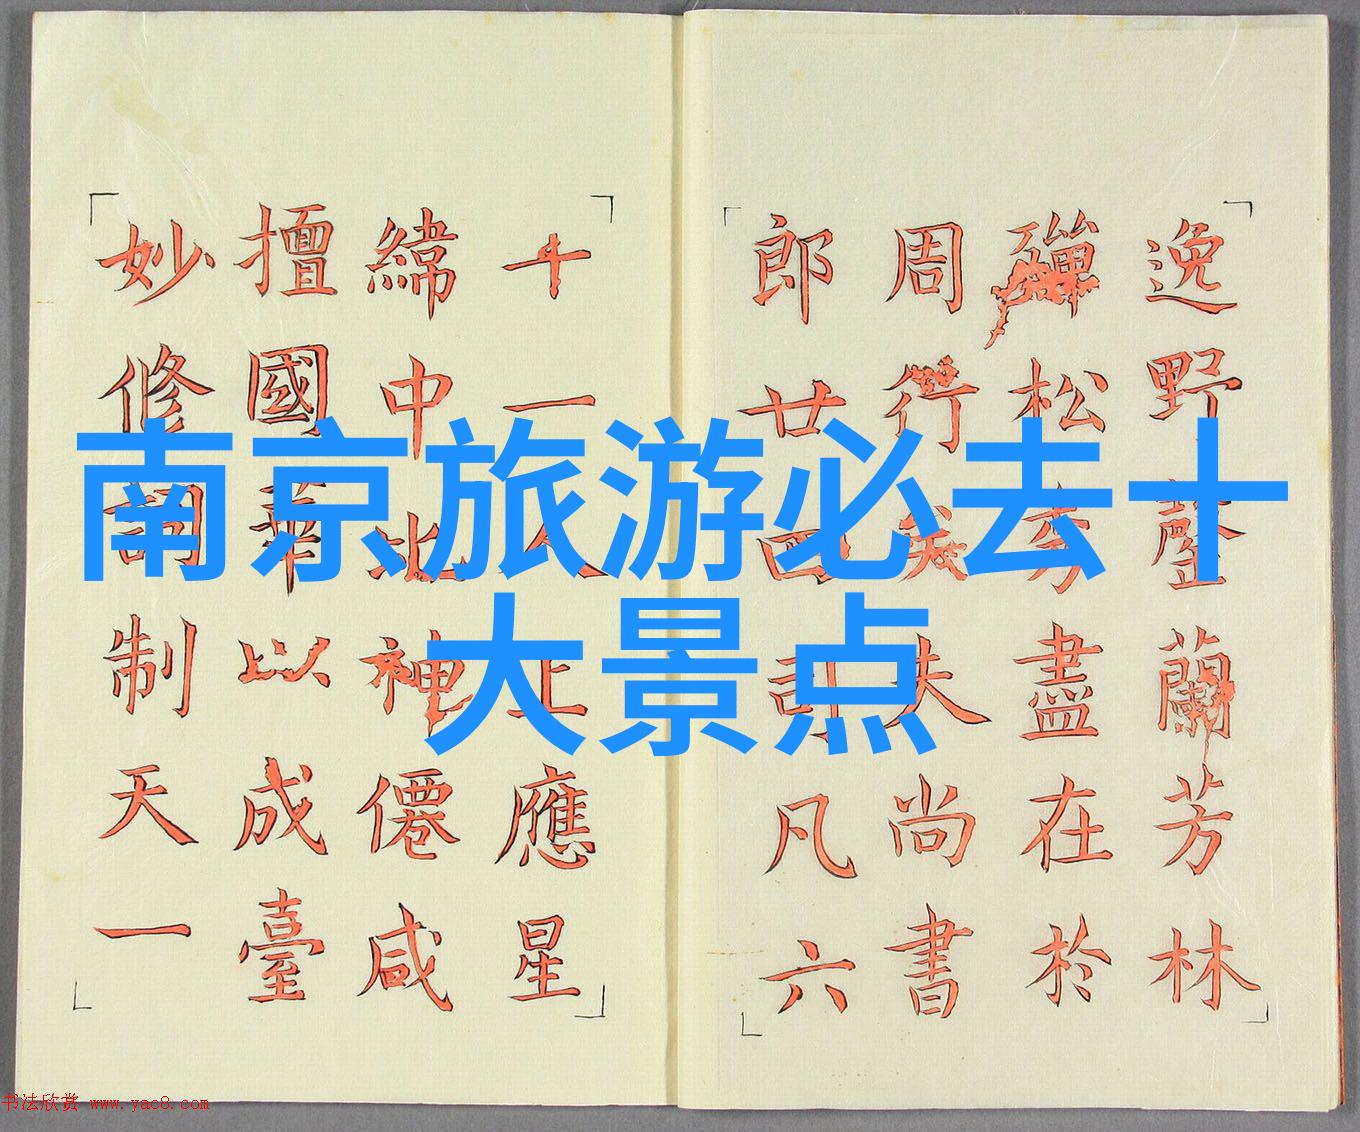 南京旅游必去十
大景点
逸野罄蘭芳林
殫松盡在於
周行夫尚書
郎廿四司凡六
十一人上應星
緯中比神僊咸
擅國華以成臺
妙修詞制天一
书法欣赏 www.yac8.com